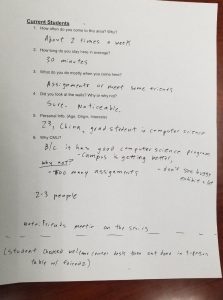 Current Students
1. How often do you come to this area? Why?
About 2 times a week
2. How long do you stay here in average?
30 minutes
3. What do you do mostly when you come here?
Assignments or meet some friends
4. Did you look at the walls? Why or why not?
Sure. Noticeable.
5. Personal Info. (Age, Origin, Interests)
23, China, grad student in computer science
6. Why CMU?
B/c is has good computer science program
Why not? - Campus is getting better,
- too many assignments - don't see bigger
exhibit a lot
2-3 people
note: Friends meetin on the
(student checked welcome center desk then sat down in 4-person
table w/ friends)